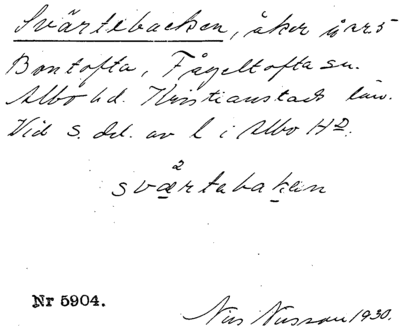 Svärtebacken, åker i nr 5
Bontofta, Fågeltofta sn.
Albo hd. Kristianstads län.
Vid s. del. av l i Albo HD.
2
sværtabakan
Nr 5904.
Nils Nilsson 1930.